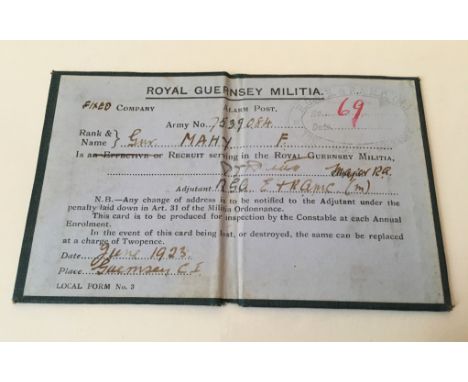 ROYAL GUERNSEY MILITIA.
FIXED COMPANY ALARM POST.
No. 69
Date
Army No. 7539084
Rank & Name } Gnr. MAHY F.
Is an EFFECTIVE or RECRUIT serving in the ROYAL GUERNSEY MILITIA,
Major RA.
Adjutant R.G.A. E & R.A.M.C. (m)
N.B.—Any change of address is to be notified to the Adjutant under the
penalty laid down in Art. 31 of the Militia Ordonnance.
This card is to be produced for inspection by the Constable at each Annual
Enrolment.
In the event of this card being lost, or destroyed, the same can be replaced
at a charge of Twopence.
Date June 1923.
Place Guernsey C.I.
LOCAL FORM No. 3